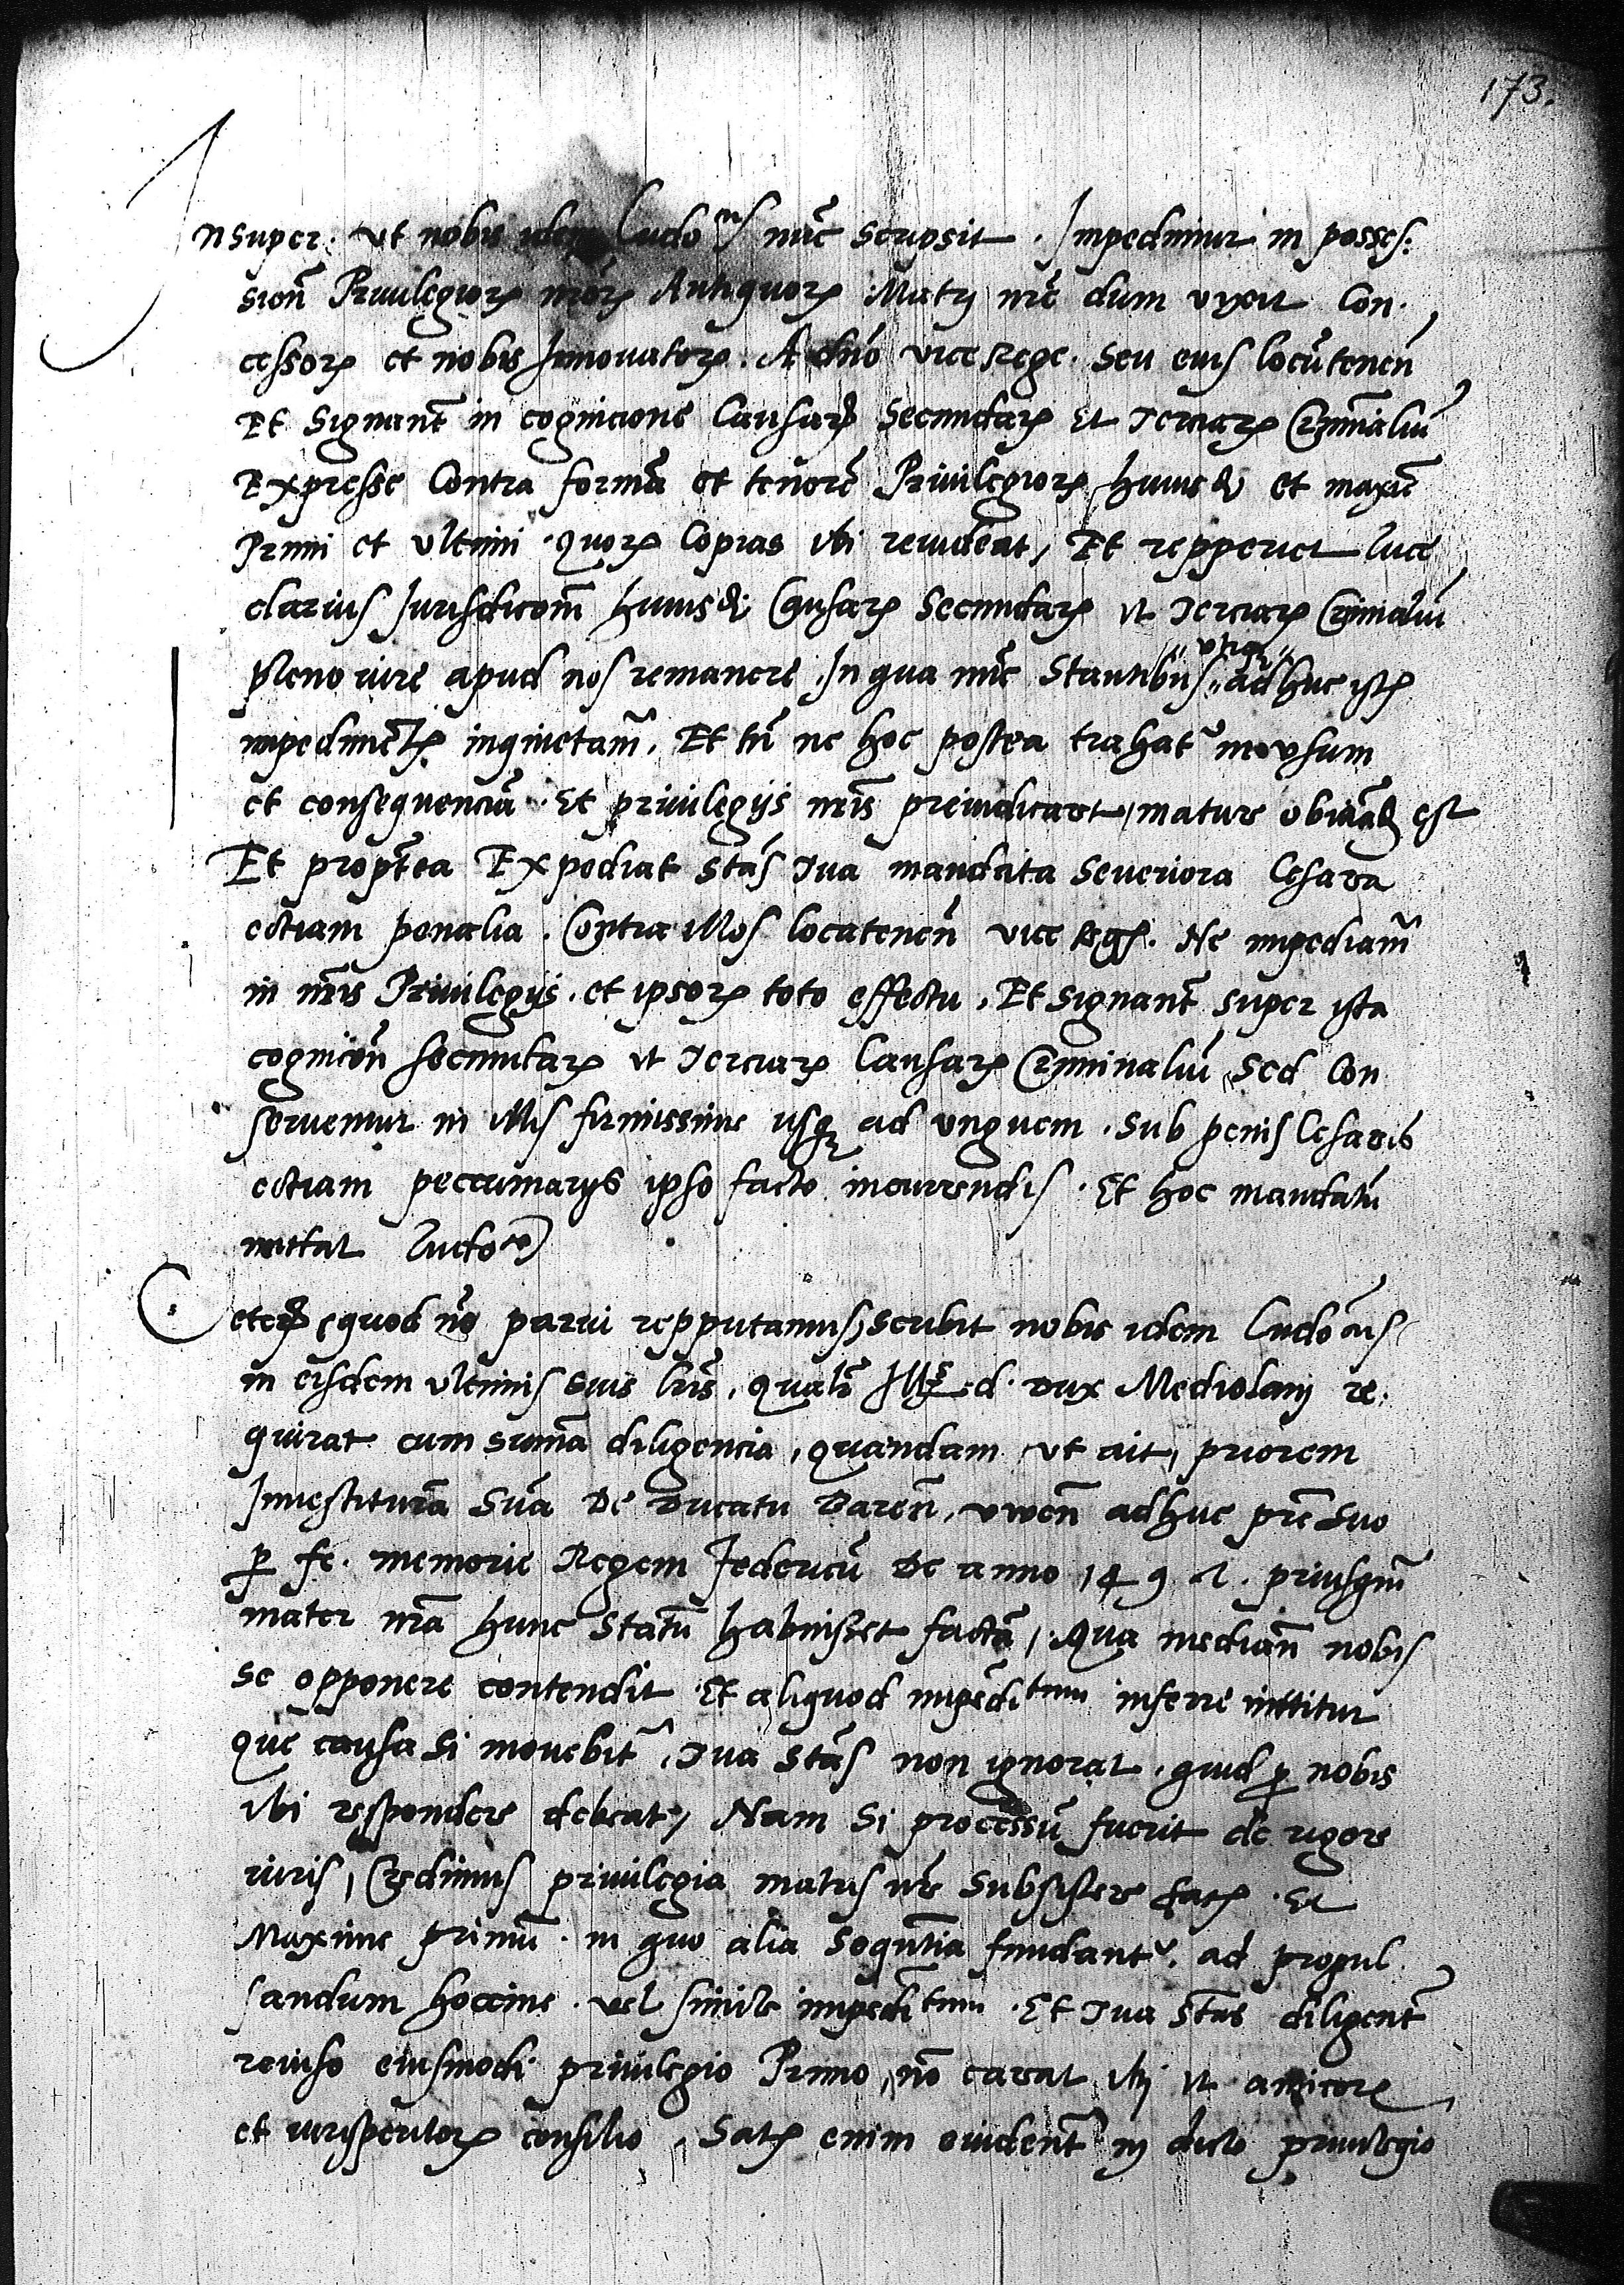 173.
Insuper: ut nobis idem Ludo^cus nu̅c scripsit. Impedimur in posses:
sion̅ Privilegiorꝝ nr̅orꝝ Antiquorꝝ Matri nr̅e dum vixit Con.
cessorꝝ et nobis Innovatorꝝ. A dn̅o vice Rege. seu eius locu̅tenen̅
Et Signant̅ in cognicione Causarꝝ Secundarꝝ et Terciarꝝ Criminaliu̅
Expresse Contra forma̅ et tenore̅ Privilegiorꝝ huiusꝺi et maxi̅e
Primi et ultimi. quorꝝ Copias ibi revideat, Et repperiet luce
clarius Jurisdicom̅ huiusꝺi Causarꝝ Secundarꝝ et Terciarꝝ Criminaliu̅
pleno iure apud nos remanere. In qua nu̅c Stantibus adhuc istꝭ
impedimentꝭ inquietam̅. Et tn̅ ne hoc postea trahat̅ in usum
et consequencia̅. Et privilegijs nr̅is preiudicaret, mature obviand̅ est
Et propt̅ea Expediat Stas̅ Tua mandata severiora Cesarea
ectiam penalia. Contra illos locatenen̅ vice Regꝭ. Ne impediam̅
in nr̅is Privilegijs. et ipsorꝝ toto effectu. Et signant̅ super ista
cognicon̅ secundarꝝ et Terciarꝝ Causarꝝ Criminaliu̅ Sed Con
servemur in illis firmissime usqꝫ ad unguem. Sub penis Cesareis
ectiam peccuniarijs ipso facto incurrendis. Et hoc mandatu̅
mittat Ludo^co
Ceterꝝ, quod no̅ parvi repputamus, scribit nobis idem Ludo̅cus
in eisdem ultimis suis lr̅is, qualr̅ Ill^s. d. Dux Mediolani re.
quirat cum suma̅ diligencia, quandam, ut ait, priorem
Investitura̅ Sua̅ De Ducatu Baren̅, viven̅ adhuc pr̅e Suo
ꝑ fe. memorie Regem Federicu̅ De anno 149 . priusqm̅
mater nr̅a hunc Statu̅ habuisset facta̅, Qua median̅ nobis
se opponere contendit. Et aliquod impedi^tum inferre nittitur
que causa Si movebit̅, Tua Stas̅ non ignorat. quid ꝓ nobis
ibi respondere debeat, Nam Si processu̅ fuerit de rigore
iuris, Credimus privilegia matris nr̅e Subsistere satꝭ. Et
Maxime primu̅. in quo alia Sequn̅tia fundant̅. ad propul.
sandum hoccine. vel simile impedi^tum. Et Tua Stas̅ diligent̅
reviso eiusmodi privilegio Primo, no̅ careat ibi et amicorꝝ
et iurisperitorꝝ consilio. Satꝭ enim evident̅ in dicto privilegio